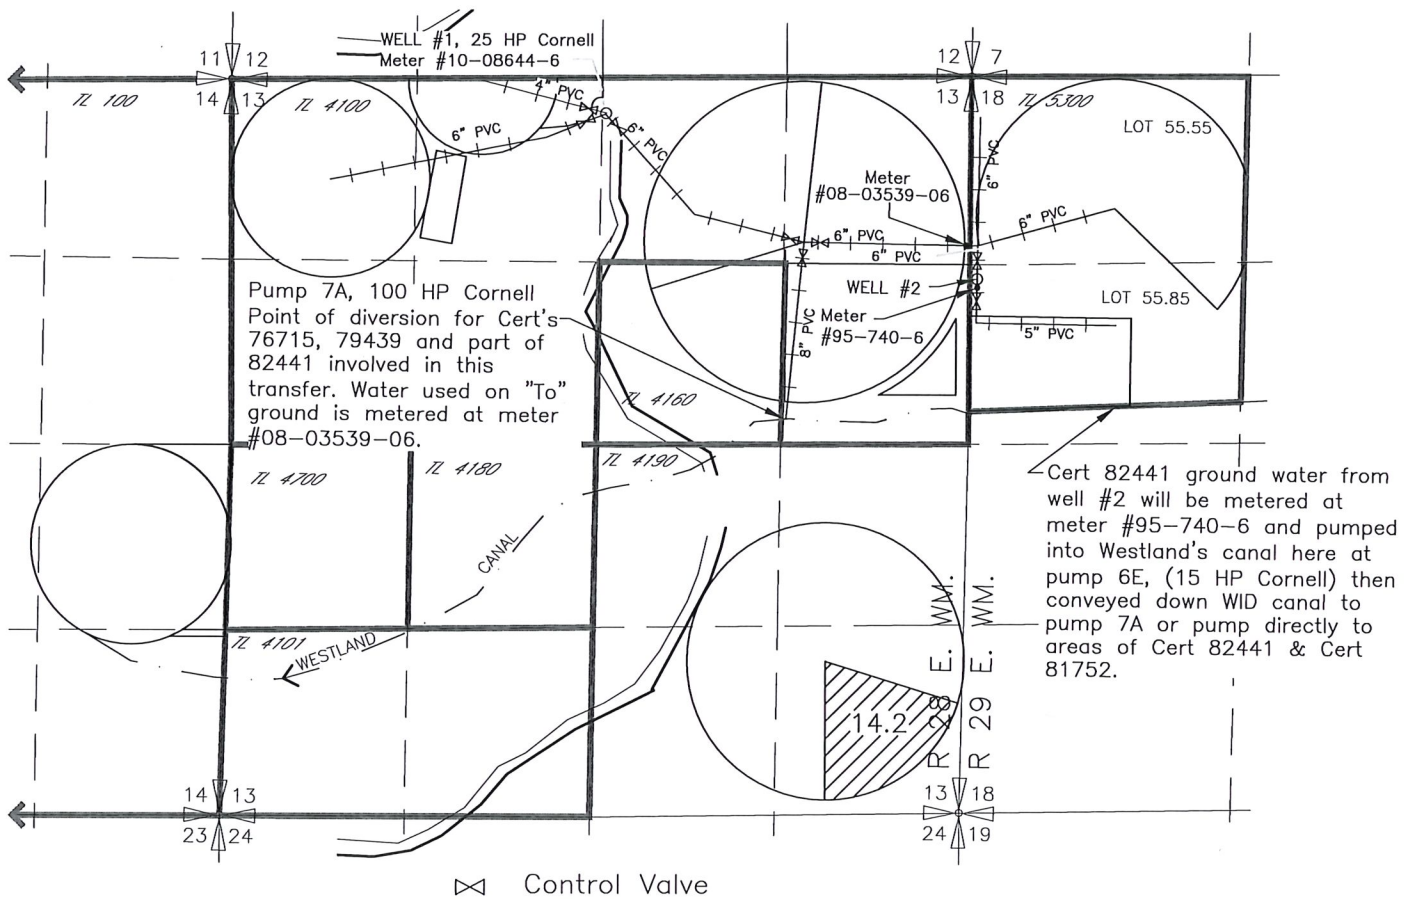 WELL #1, 25 HP Cornell
Meter #10-08644-6
11 12
14 13
12 7
13 18
TL 100
TL 4100
4" PVC
6" PVC
6" PVC
TL 5300
LOT 55.55
6" PVC
Meter
#08-03539-06
6" PVC
6" PVC
6" PVC
WELL #2
Meter
#95-740-6
8" PVC
5" PVC
LOT 55.85
Pump 7A, 100 HP Cornell
Point of diversion for Cert's
76715, 79439 and part of
82441 involved in this
transfer. Water used on "To"
ground is metered at meter
#08-03539-06.
TL 4160
TL 4700
TL 4180
TL 4190
CANAL
WESTLAND
TL 4101
Cert 82441 ground water from
well #2 will be metered at
meter #95-740-6 and pumped
into Westland's canal here at
pump 6E, (15 HP Cornell) then
conveyed down WID canal to
pump 7A or pump directly to
areas of Cert 82441 & Cert
81752.
R 28 E. WM.
R 29 E. WM.
14.2
14 13
23 24
13 18
24 19
Control Valve